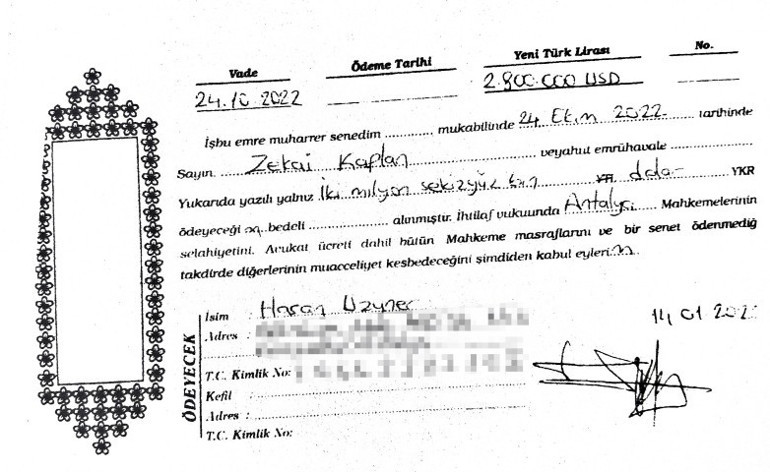 Vade Ödeme Tarihi Yeni Türk Lirası No.
24.10.2022 2.800.000 USD
İşbu emre muharrer senedim ............ mukabilinde 24 Ekim 2022 tarihinde
Sayın. Zekai Kaplan veyahut emrühavale
Yukarıda yazılı yalnız İki milyon sekizyüz bin YTL dolar YKR
ödeyeceği m bedeli ............ alınmıştır. İhtilaf vukuunda Antalya Mahkemelerinin
selahiyetini. Avukat ücreti dahil bütün Mahkeme masraflarını ve bir senet ödenmediğ
takdirde diğerlerinin muacceliyet kesbedeceğini şimdiden kabul eylerim.
ÖDEYECEK
İsim : Hasan Uzyner
14 01 202
Adres :
T.C. Kimlik No:
Kefil :
Adres :
T.C. Kimlik No: